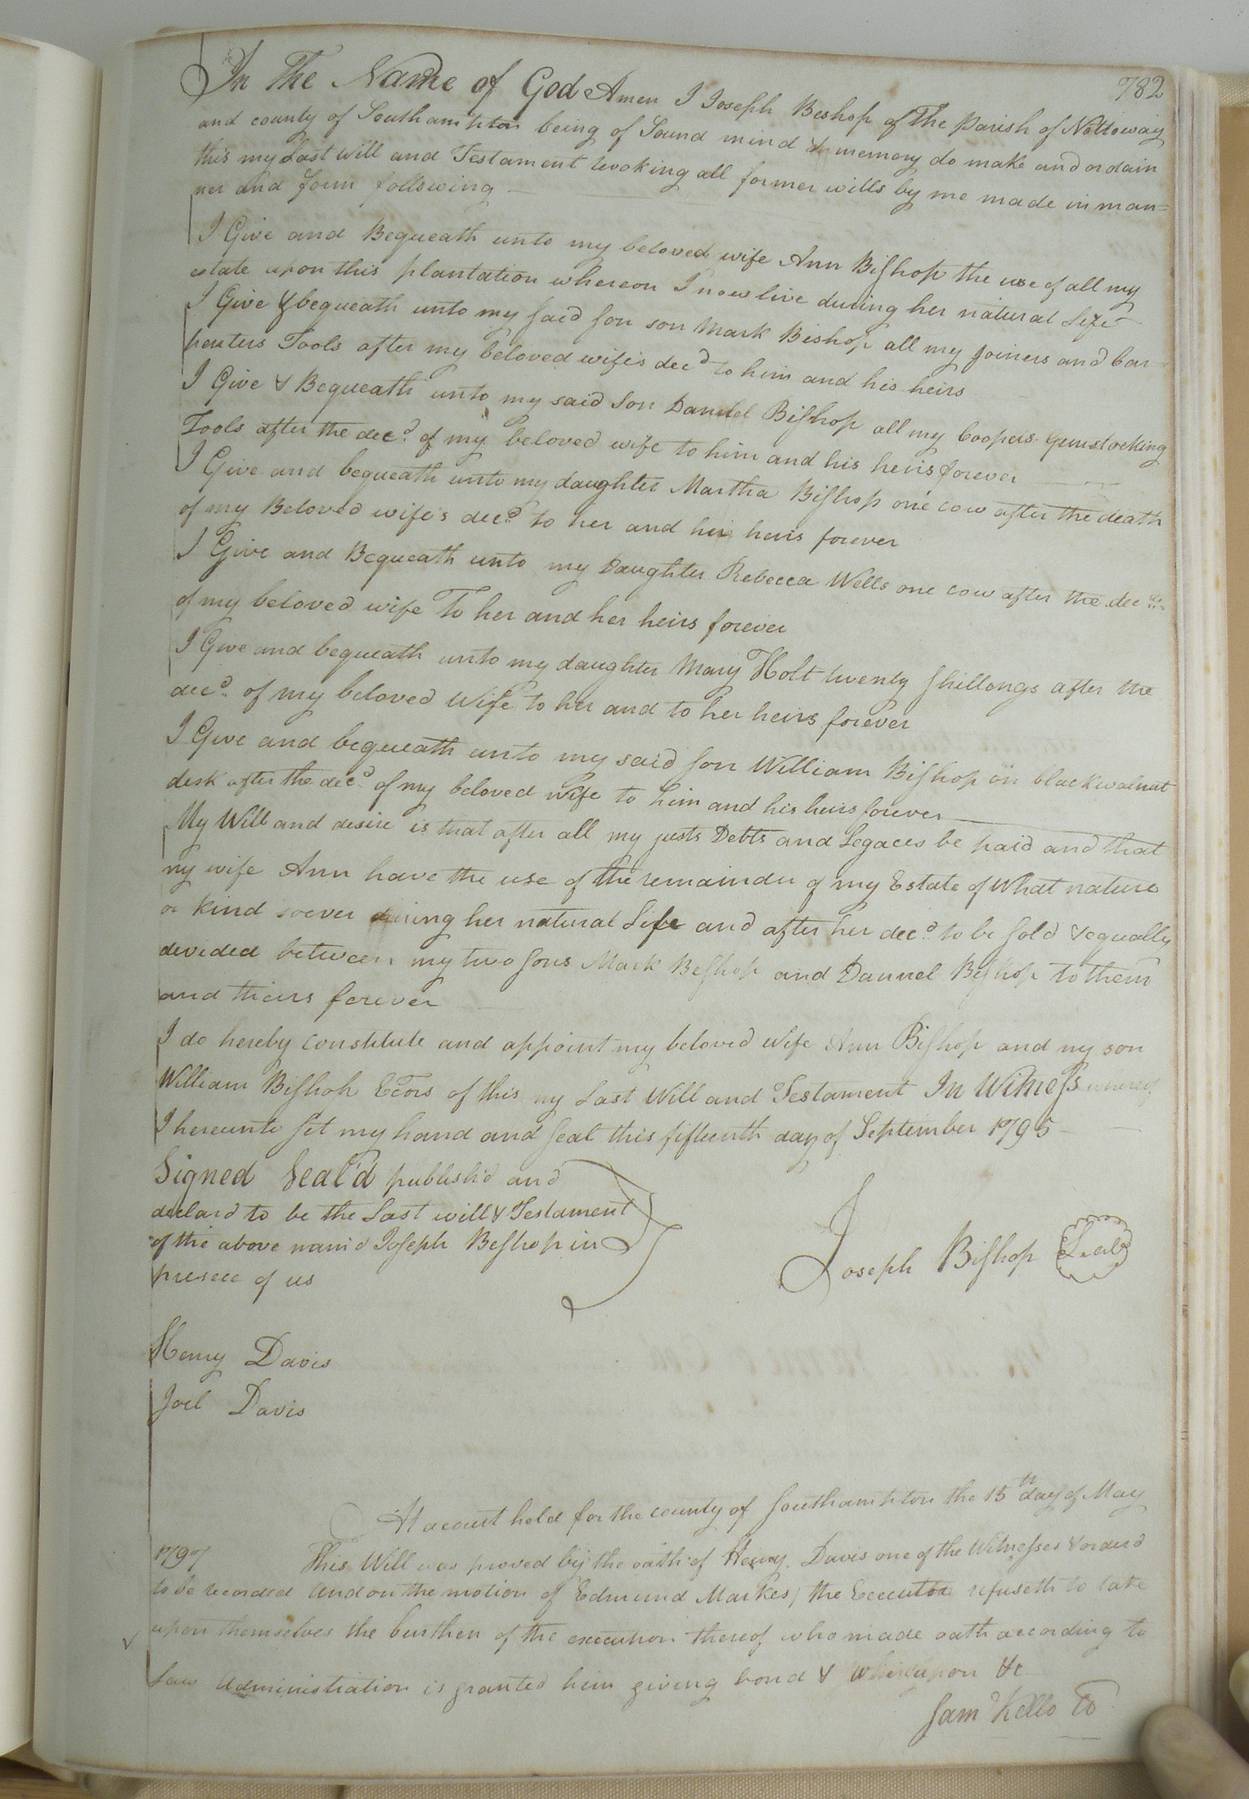 782
In The Name of God Amen I Joseph Bishop of The Parish of Nottoway
and county of Southampton being of Sound mind & memory do make and ordain
this my Last will and Testament revoking all former wills by me made in man=
ner and form following
I Give and Bequeath unto my beloved wife Ann Bishop the use of all my
estate upon this plantation whereon I now live during her natural Life
I Give & bequeath unto my said son son Mark Bishop all my Joiners and Car
penters Tools after my beloved wife's decd to him and his heirs
I Give & Bequeath unto my said Son Daniel Bishop all my Coopers Gunstocking
Tools after the decd of my beloved wife to him and his heirs forever
I Give and bequeath unto my daughter Martha Bishop one cow after the death
of my Beloved wife's decd to her and her heirs forever
I Give and Bequeath unto my Daughter Rebecca Wells one cow after the decd
of my beloved wife To her and her heirs forever
I Give and bequeath unto my daughter Mary Holt twenty shillongs after the
decd of my beloved Wife to her and to her heirs forever
I Give and bequeath unto my said son William Bishop on black walnut
desk after the decd of my beloved Wife to him and his heirs forever
My Will and desire is that after all my justs Debts and Legaces be paid and that
my wife Ann have the use of the remainder of my Estate of What nature
or kind soever during her natural Life and after her decd to be sold & equally
devided between my two sons Mark Bishop and Dannel Bishop to them
and theirs forever
I do hereby constitute and appoint my beloved wife Ann Bishop and my son
William Bishop Ectors of this my Last Will and Testament In Witness whereof
I hereunto set my hand and seal this fifteenth day of September 1795
Signed Seal'd publish'd and
declard to be the Last will & Testament
of the above nam'd Joseph Bishop in
presece of us
Joseph Bishop Seal
Henry Davis
Joel Davis
At a court held for the county of Southampton the 15th day of May
1797 This Will was proved by the oath of Henry Davis one of the Witnesses & orderd
to be recorded And on the motion of Edmund Markes, the Executor refuseth to take
upon themselves the burthen of the execution thereof who made oath according to
Law Administration is granted him giving bond & Whereupon &c
Sam Kello CC